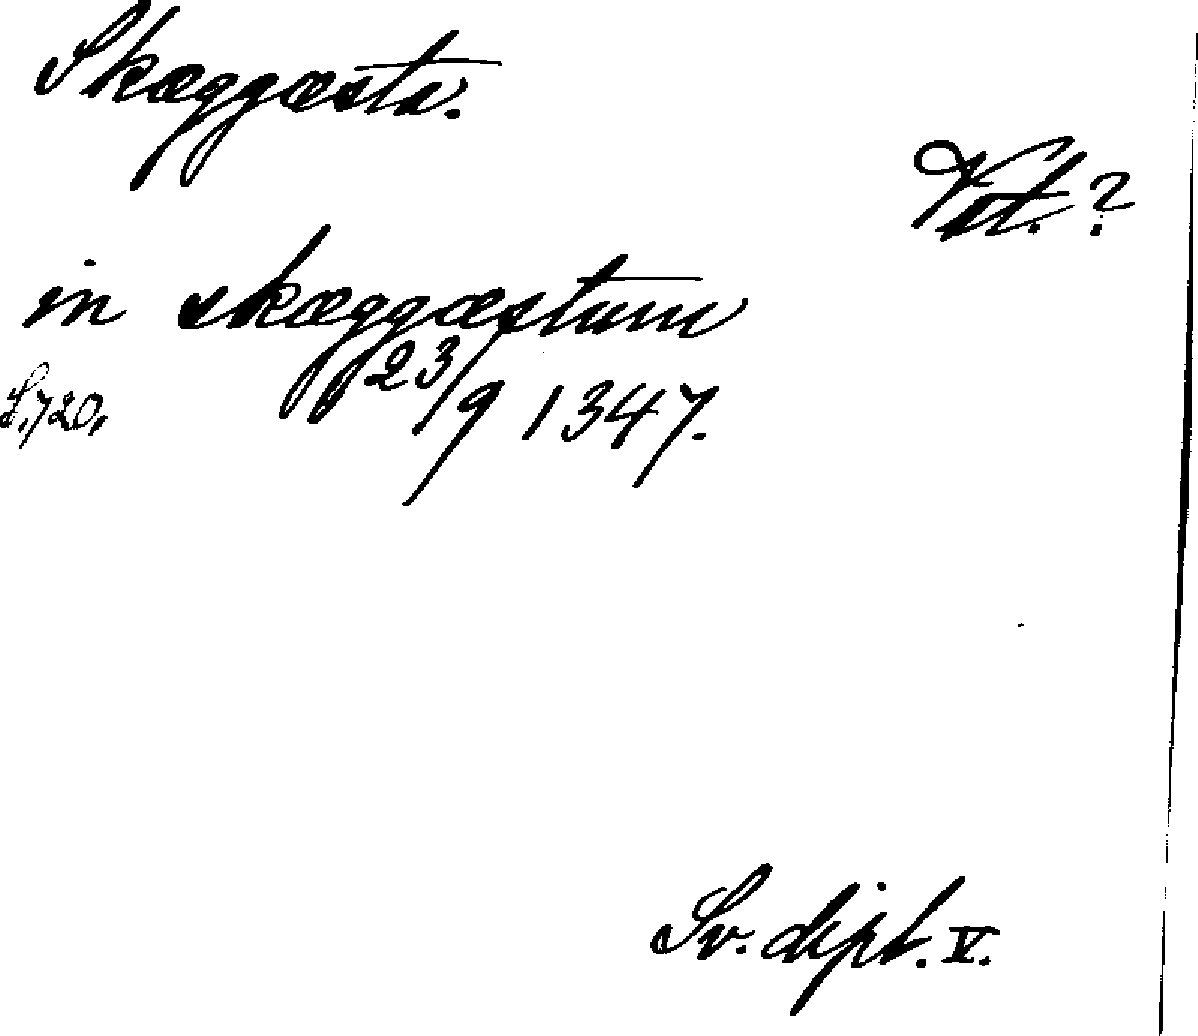 Skæggæsta.
Vst. ?
in skæggæstum
S. 720.
23/9 1347.
Sv. dipl. V.